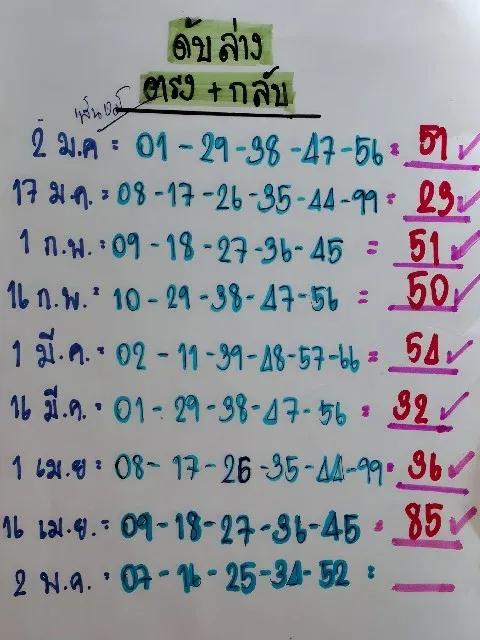 ดับล่าง
ตรง + กลับ
2 ม.ค = 01 - 29 - 38 - 47 - 56 = 51 ✓
17 ม.ค. = 08 - 17 - 26 - 35 - 44 - 99 = 23 ✓
1 ก.พ. = 09 - 18 - 27 - 36 - 45 = 51 ✓
16 ก.พ. = 10 - 29 - 38 - 47 - 56 = 50 ✓
1 มี.ค. = 02 - 11 - 39 - 48 - 57 - 66 = 54 ✓
16 มี.ค. = 01 - 29 - 38 - 47 - 56 = 32 ✓
1 เม.ย = 08 - 17 - 26 - 35 - 44 - 99 = 36 ✓
16 เม.ย. = 09 - 18 - 27 - 36 - 45 = 85 ✓
2 พ.ค. = 07 - 16 - 25 - 34 - 52 =